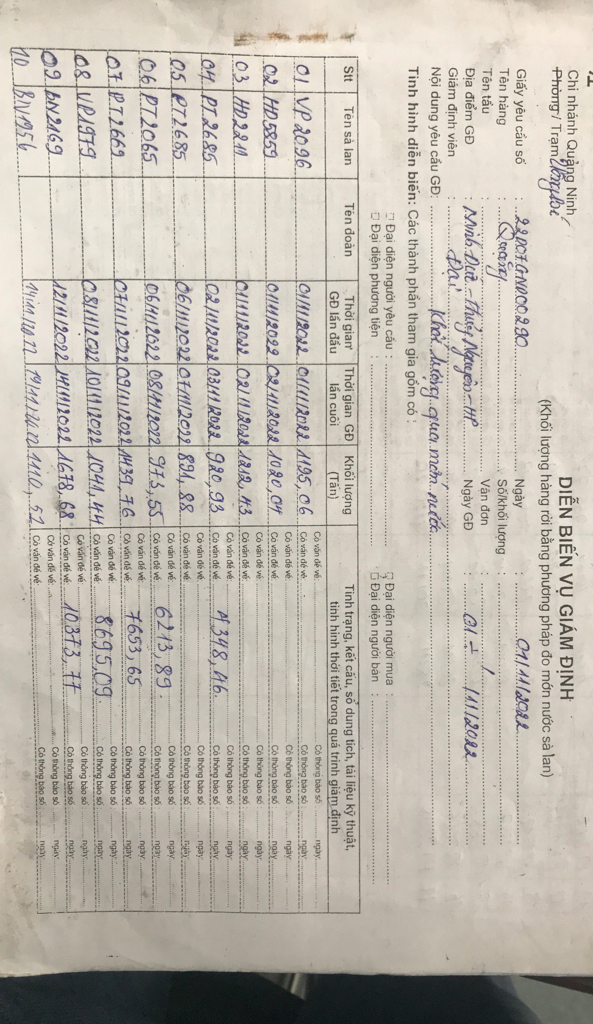 DIỄN BIẾN VỤ GIÁM ĐỊNH
(Khối lượng hàng rời bằng phương pháp đo mớn nước sà lan)
Chi nhánh Quảng Ninh
Phòng / Trạm
Giấy yêu cầu số : 22P07GND00290 Ngày : 01/11/2022
Tên hàng : Quặng Số/khối lượng :
Tên tầu : Vận đơn : /
Địa điểm GĐ : Minh Đức - Thủy Nguyên - HP Ngày GĐ : 01 ÷ /11/2022
Giám định viên : Đại
Nội dung yêu cầu GĐ: Khối lượng qua mớn nước.
Tình hình diễn biến: Các thành phần tham gia gồm có :
□ Đại diện người yêu cầu : □ Đại diện người mua :
□ Đại diện phương tiện : □ Đại diện người bán :
Stt Tên sà lan Tên đoàn Thời gian GĐ lần đầu Thời gian GĐ lần cuối Khối lượng (Tấn) Tình trạng, kết cấu, sổ dung tích, tài liệu kỹ thuật, tình hình thời tiết trong quá trình giám định
01 VP 2096 01/11/2022 01/11/2022 1195,06 Có vấn đề về Có thông báo số ngày
02 HD5859 01/11/2022 02/11/2022 1020,04 Có vấn đề về Có thông báo số ngày
03 HD2211 01/11/2022 02/11/2022 1212,43 Có vấn đề về Có thông báo số ngày
04 PT 2685 02/11/2022 03/11/2022 920,93 Có vấn đề về 4348,46. Có thông báo số ngày
05 PT2685 06/11/2022 07/11/2022 891,88 Có vấn đề về Có thông báo số ngày
06 PT2065 06/11/2022 08/11/2022 973,55 Có vấn đề về 6213,89. Có thông báo số ngày
07 PT2669 07/11/2022 09/11/2022 1439,76 Có vấn đề về 7653,65 Có thông báo số ngày
08 VP1979 08/11/2022 10/11/2022 1041,44 Có vấn đề về 8695,09. Có thông báo số ngày
09 BN2169 12/11/2022 14/11/2022 1678,68 Có vấn đề về 10373,77 Có thông báo số ngày
10 14/11/2022 1110,52 Có vấn đề về Có thông báo số ngày